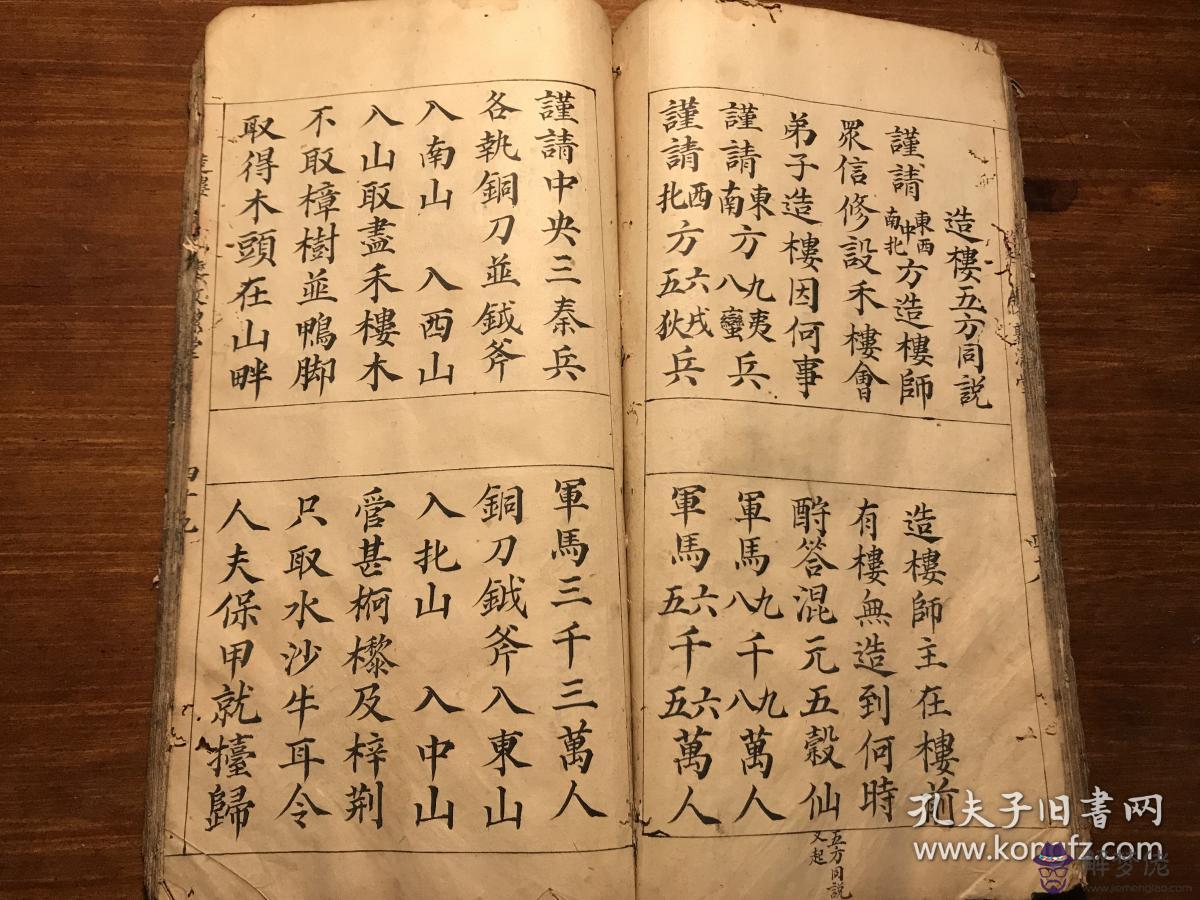 造樓五方同説
謹請東西中南北方造樓師
造樓師主在樓前
眾信修設禾樓會
有樓無造到何時
弟子造樓因何事
酧答混元五穀仙
謹請東南方九夷八蠻兵
軍馬九八千九八萬人
謹請西北方六戎五狄兵
軍馬六五千六五萬人
五方同説又起
謹請中央三秦兵
軍馬三千三萬人
各執銅刀並鉞斧
銅刀鉞斧入東山
入南山 入西山
入北山 入中山
入山取盡禾樓木
管甚椆檪及梓荆
不取樟樹並鴨脚
只取水沙牛耳令
取得木頭在山畔
人夫保甲就擡歸
四十九
孔夫子旧書网
www.kongfz.com
解梦佬
www.jiemenglao.com